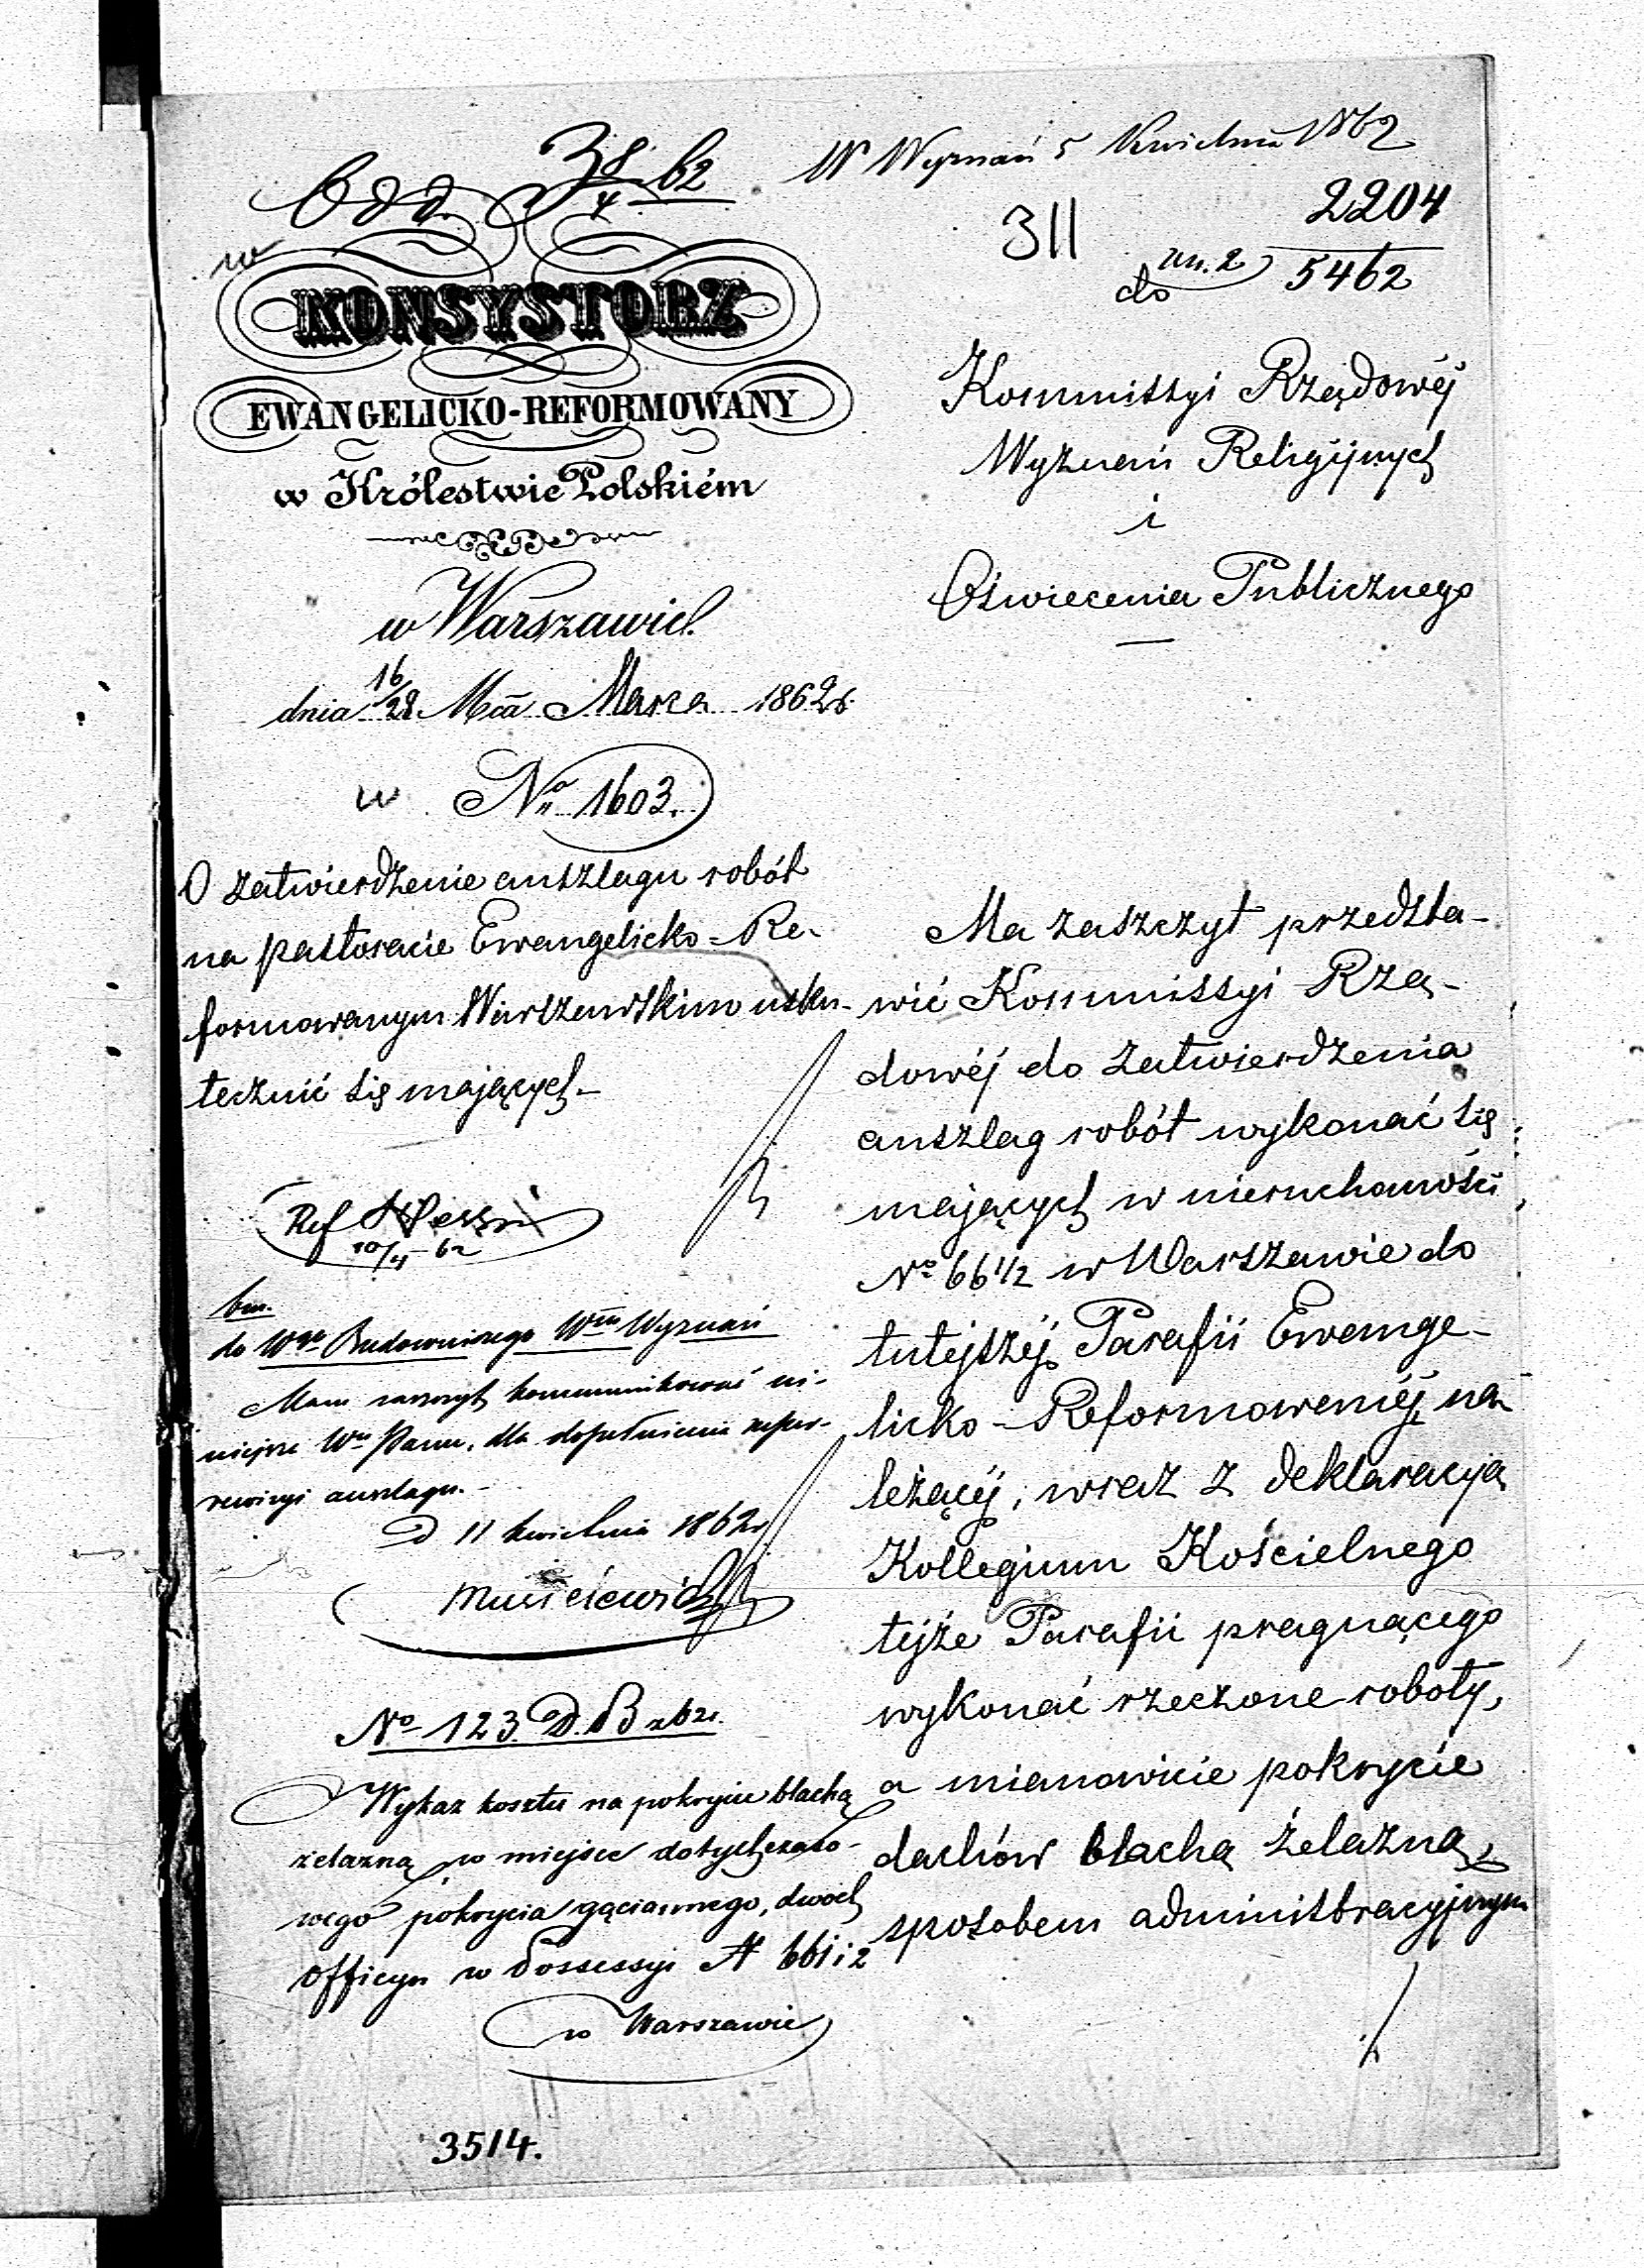 W Wyznań 5 Kwietnia 1862
Odd. 3 8/4 62
2204
311
un. 2
do 5462
w
KONSYSTORZ
EWANGELICKO-REFORMOWANY
w Królestwie Polskiém
w Warszawie.
dnia 16/28 Mca Marca 1862 r.
w No 1603.
O zatwierdzenie anszlagu robót
na pastoracie Ewangelicko-Re-
formowanym Warszawskim usku-
tecznić się mających.
Ref
10/4 - 62
bm.
do Wgo Budowniczego Wm Wyznań
Mam zaszczyt kommunikować ni-
niejsze Wu Panu, dla dopełnienia super-
rewizyi anszlagu.
D 11 kwietnia 1862 r.
No 123 D. B z 62 r.
Wykaz kosztu na pokrycie blachą
żelazną w miejsce dotychczaso-
wego pokrycia gąciannego, dwóch
officyn w Possessyi N 66 1 i 2
w Warszawie
3514.
Kommissyi Rządowéj
Wyznań Religijnych
i
Oświecenia Publicznego
Ma zaszczyt przedsta-
wić Kommissyi Rzą-
dowéj do zatwierdzenia
anszlag robót wykonać się
mających w nieruchomości
No 66 1/2 w Warszawie do
tutejszéj Parafii Ewange-
licko-Reformowanéj na-
leżącéj, wraz z deklaracyą
Kollegium Kościelnego
tejże Parafii pragnącego
wykonać rzeczone roboty,
a mianowicie pokrycie
dachów blachą żelazną,
sposobem administracyjnym